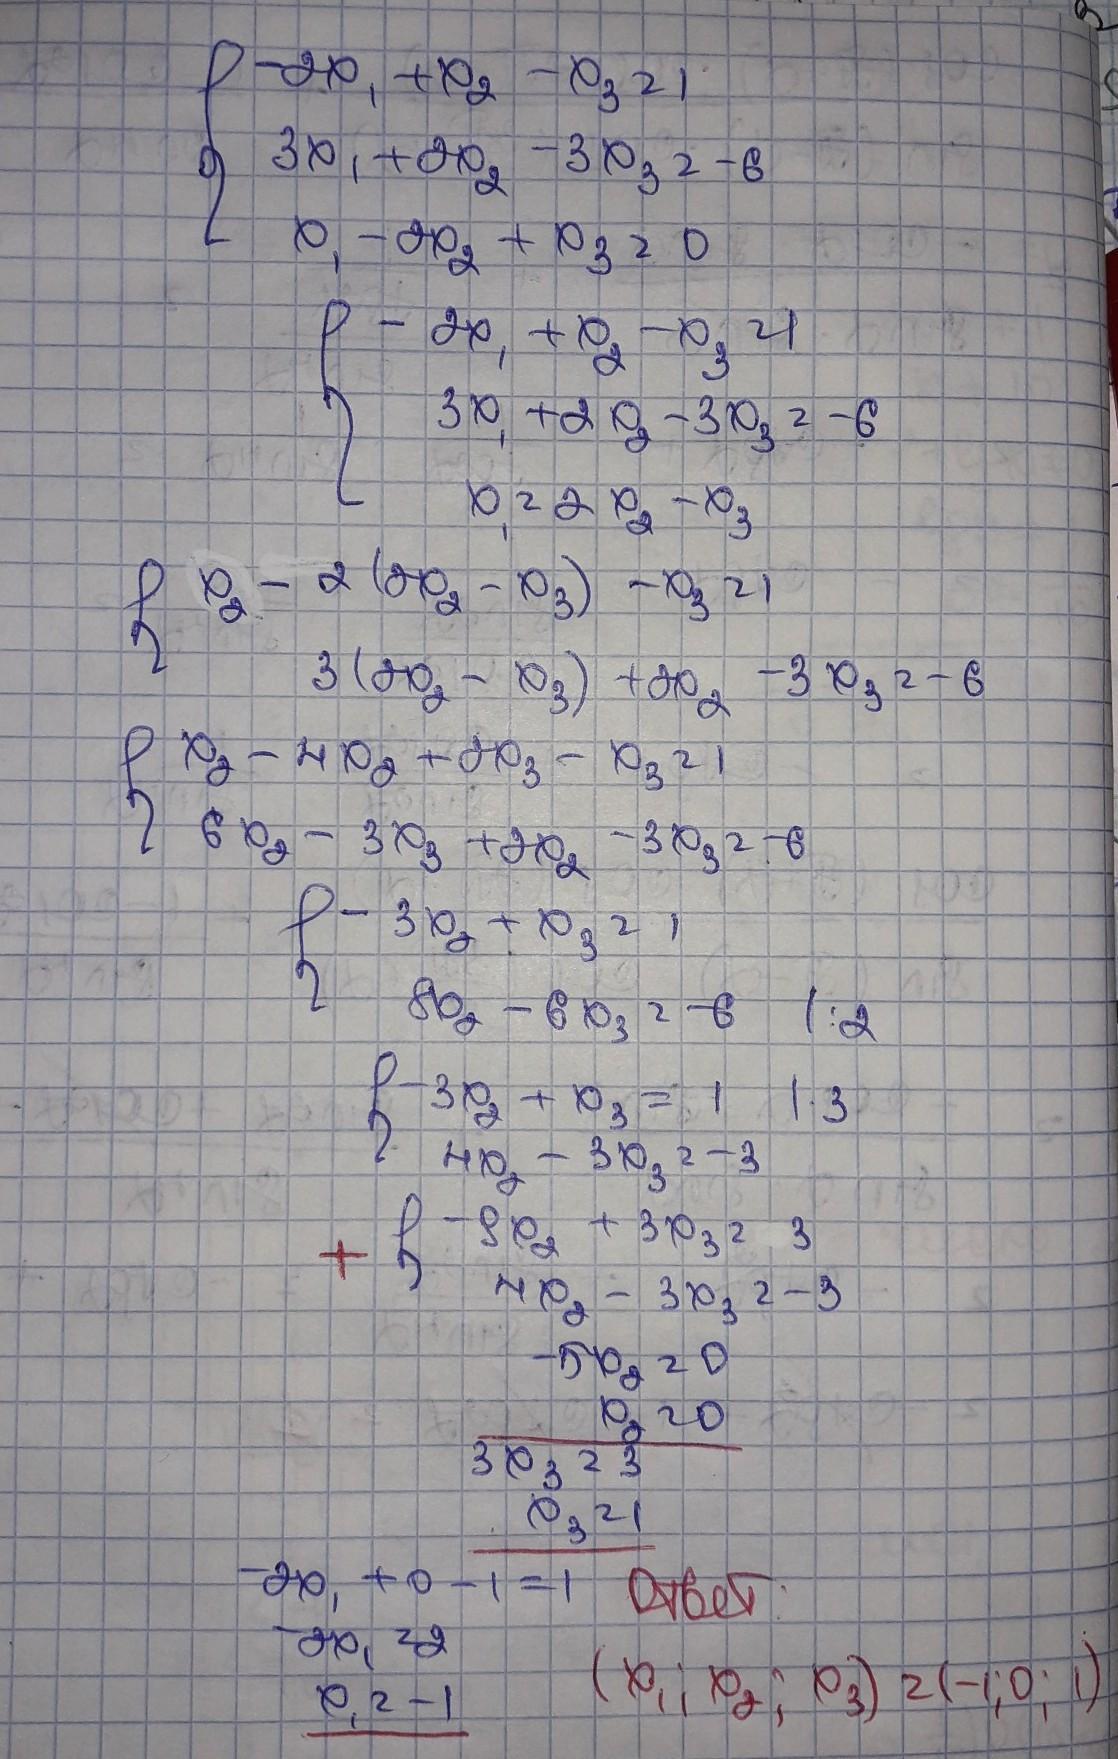 -2x₁ + x₂ - x₃ = 1
3x₁ + 2x₂ - 3x₃ = -6
x₁ - 2x₂ + x₃ = 0
-2x₁ + x₂ - x₃ = 1
3x₁ + 2x₂ - 3x₃ = -6
x₁ = 2x₂ - x₃
x₂ - 2(2x₂ - x₃) - x₃ = 1
3(2x₂ - x₃) + 2x₂ - 3x₃ = -6
x₂ - 4x₂ + 2x₃ - x₃ = 1
6x₂ - 3x₃ + 2x₂ - 3x₃ = -6
-3x₂ + x₃ = 1
8x₂ - 6x₃ = -6 |:2
-3x₂ + x₃ = 1 |·3
4x₂ - 3x₃ = -3
+ -9x₂ + 3x₃ = 3
4x₂ - 3x₃ = -3
-5x₂ = 0
x₂ = 0
3x₃ = 3
x₃ = 1
-2x₁ + 0 - 1 = 1
-2x₁ = 2
x₁ = -1
Ответ:
(x₁; x₂; x₃) = (-1; 0; 1)